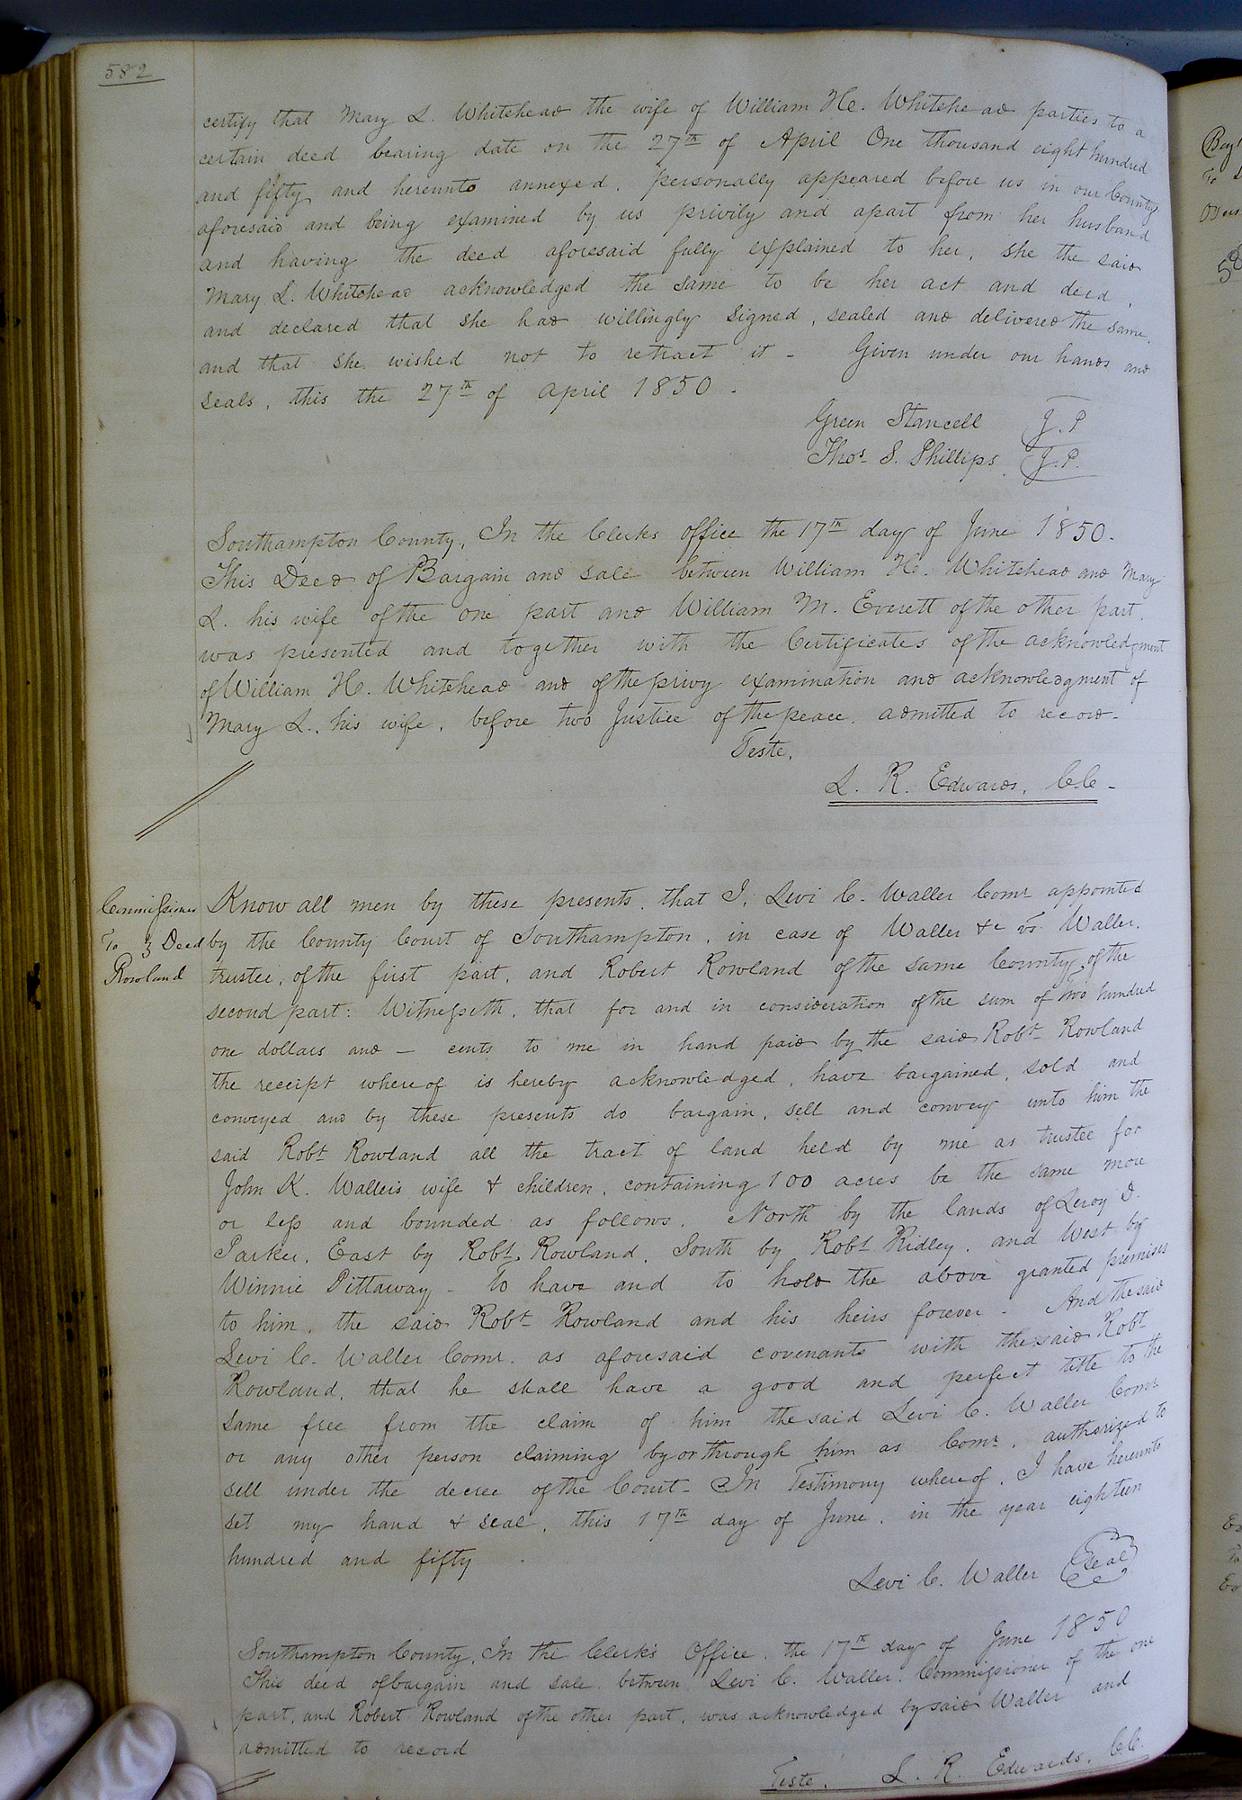 582
certify that Mary L. Whitehead the wife of William H. Whitehead parties to a
certain deed bearing date on the 27th of April One thousand eight hundred
and fifty and hereunto annexed, personally appeared before us in our County
aforesaid and being examined by us privily and apart from her husband
and having the deed aforesaid fully explained to her, she the said
Mary L. Whitehead acknowledged the same to be her act and deed,
and declared that she had willingly signed, sealed and delivered the same,
and that she wished not to retract it - Given under our hands and
seals, this the 27th of April 1850.
Green Stancell J.P
Thos. S. Phillips J.P.
Southampton County, In the Clerks office the 17th day of June 1850.
This Deed of Bargain and sale between William H. Whitehead and Mary
L. his wife of the one part and William M. Everett of the other part,
was presented and together with the Certificates of the acknowledgment
of William H. Whitehead and of the privy examination and acknowledgment of
Mary L., his wife, before two Justice of the peace, admitted to record.
Teste,
L. R. Edwards, C.C.
Commissioner
To } Deed
Rowland
Know all men by these presents, that I, Levi C. Waller Comr. appointed
by the County Court of Southampton, in case of Waller &c vs. Waller,
trustee, of the first part, and Robert Rowland of the same County, of the
second part: Witnesseth, that for and in consideration of the sum of two hundred
one dollars and - cents to me in hand paid by the said Robt. Rowland
the receipt whereof is hereby acknowledged, have bargained, sold and
conveyed and by these presents do bargain, sell and convey unto him the
said Robt. Rowland all the tract of land held by me as trustee for
John K. Wallers wife & children, containing 100 acres be the same more
or less and bounded as follows. North by the lands of Leroy D.
Parker, East by Robt. Rowland, South by Robt. Ridley, and West by
Winnie Pittaway - To have and to hold the above granted premises
to him, the said Robt. Rowland and his heirs forever. And the said
Levi C. Waller Comr. as aforesaid covenants with the said Robt.
Rowland, that he shall have a good and perfect title to the
same free from the claim of him the said Levi C. Waller Comr.
or any other person claiming by or through him as Comr., authorized to
sell under the decree of the Court - In Testimony whereof, I have hereunto
set my hand & seal, this 17th day of June, in the year eighteen
hundred and fifty.
Levi C. Waller Seal
Southampton County, In the Clerk's Office, the 17th day of June 1850
This deed of bargain and sale between Levi C. Waller, Commissioner of the one
part, and Robert Rowland of the other part, was acknowledged by said Waller and
admitted to record
Teste, L. R. Edwards, C.C.